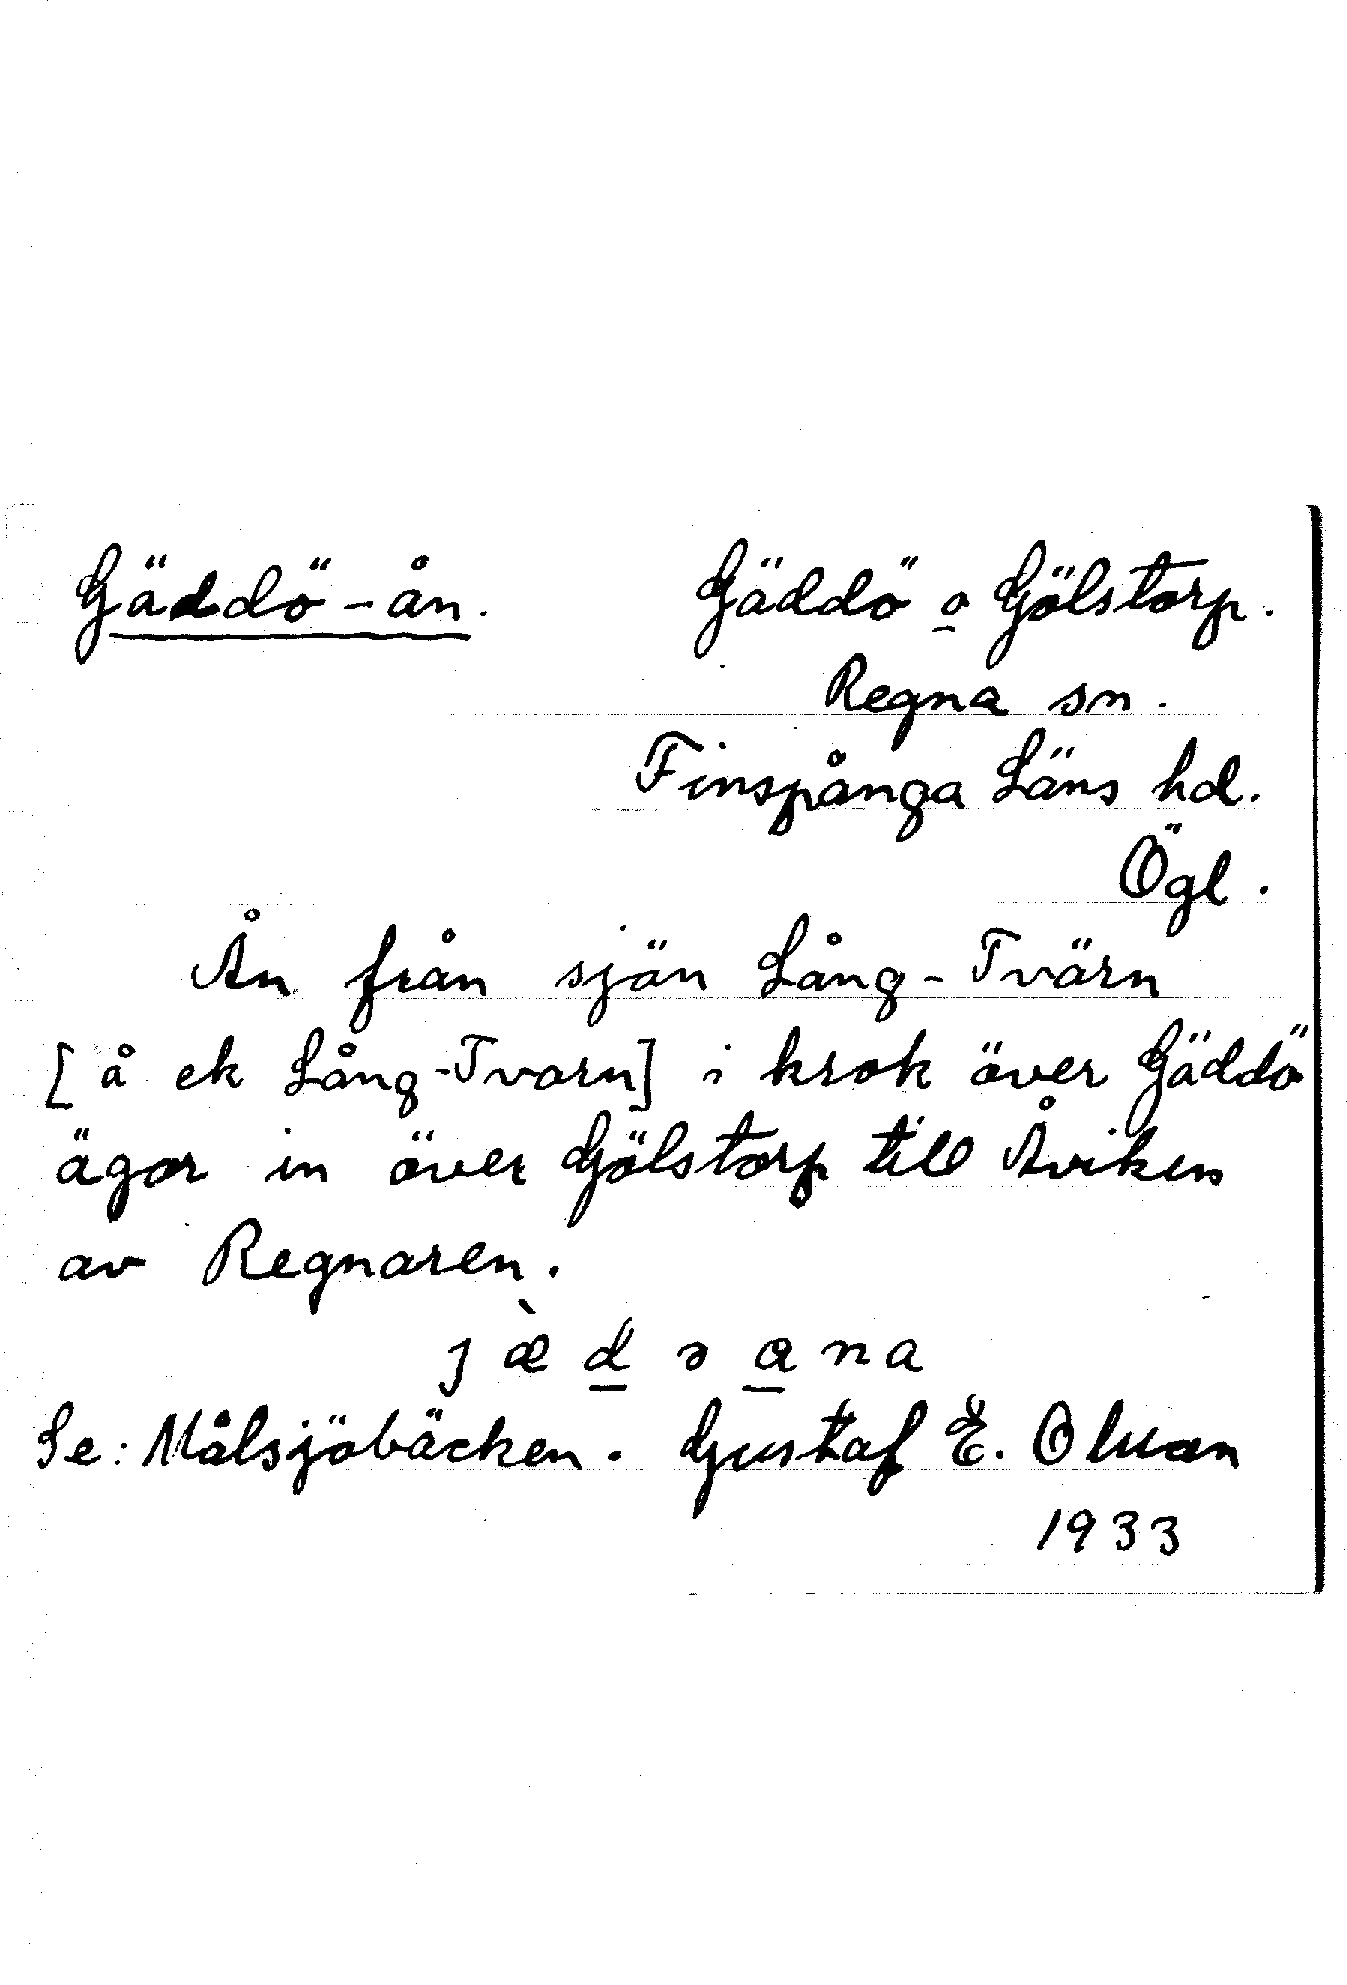 Gäddö-ån. Gäddö o Gölstorp.
Regna sn.
Finspånga Läns hd.
Ögl.
Ån från sjön Lång-Tvärn
[å ek Lång-Tvarn] i krok över Gäddö
ägor in över Gölstorp till Åviken
av Regnaren.
jæ̀dɘana
Se: Målsjöbäcken. Gustaf E. Olsson
1933